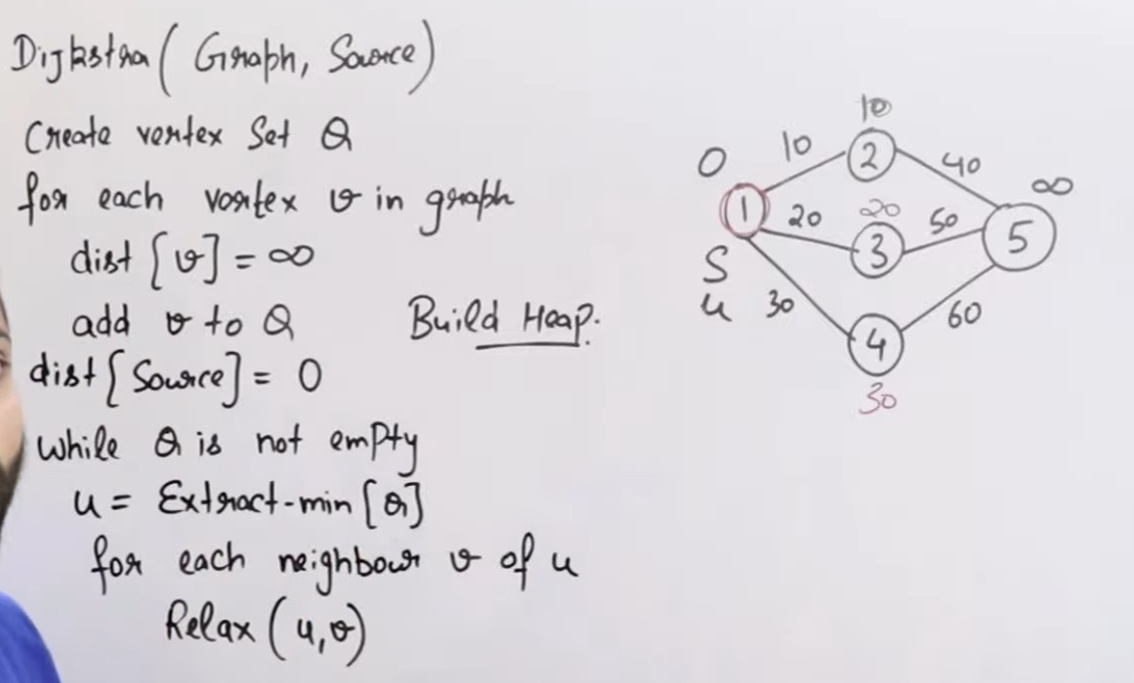 Dijkstra ( Graph, Source)
Create vertex Set Q
for each vertex v in graph
dist [v] = ∞
add v to Q
Build Heap.
dist [ Source] = 0
while Q is not empty
u = Extract-min [Q]
for each neighbour v of u
Relax (u,v)
10
0 10 2 40 ∞
1 20 20 50 5
S 3
u 30 60
4
30